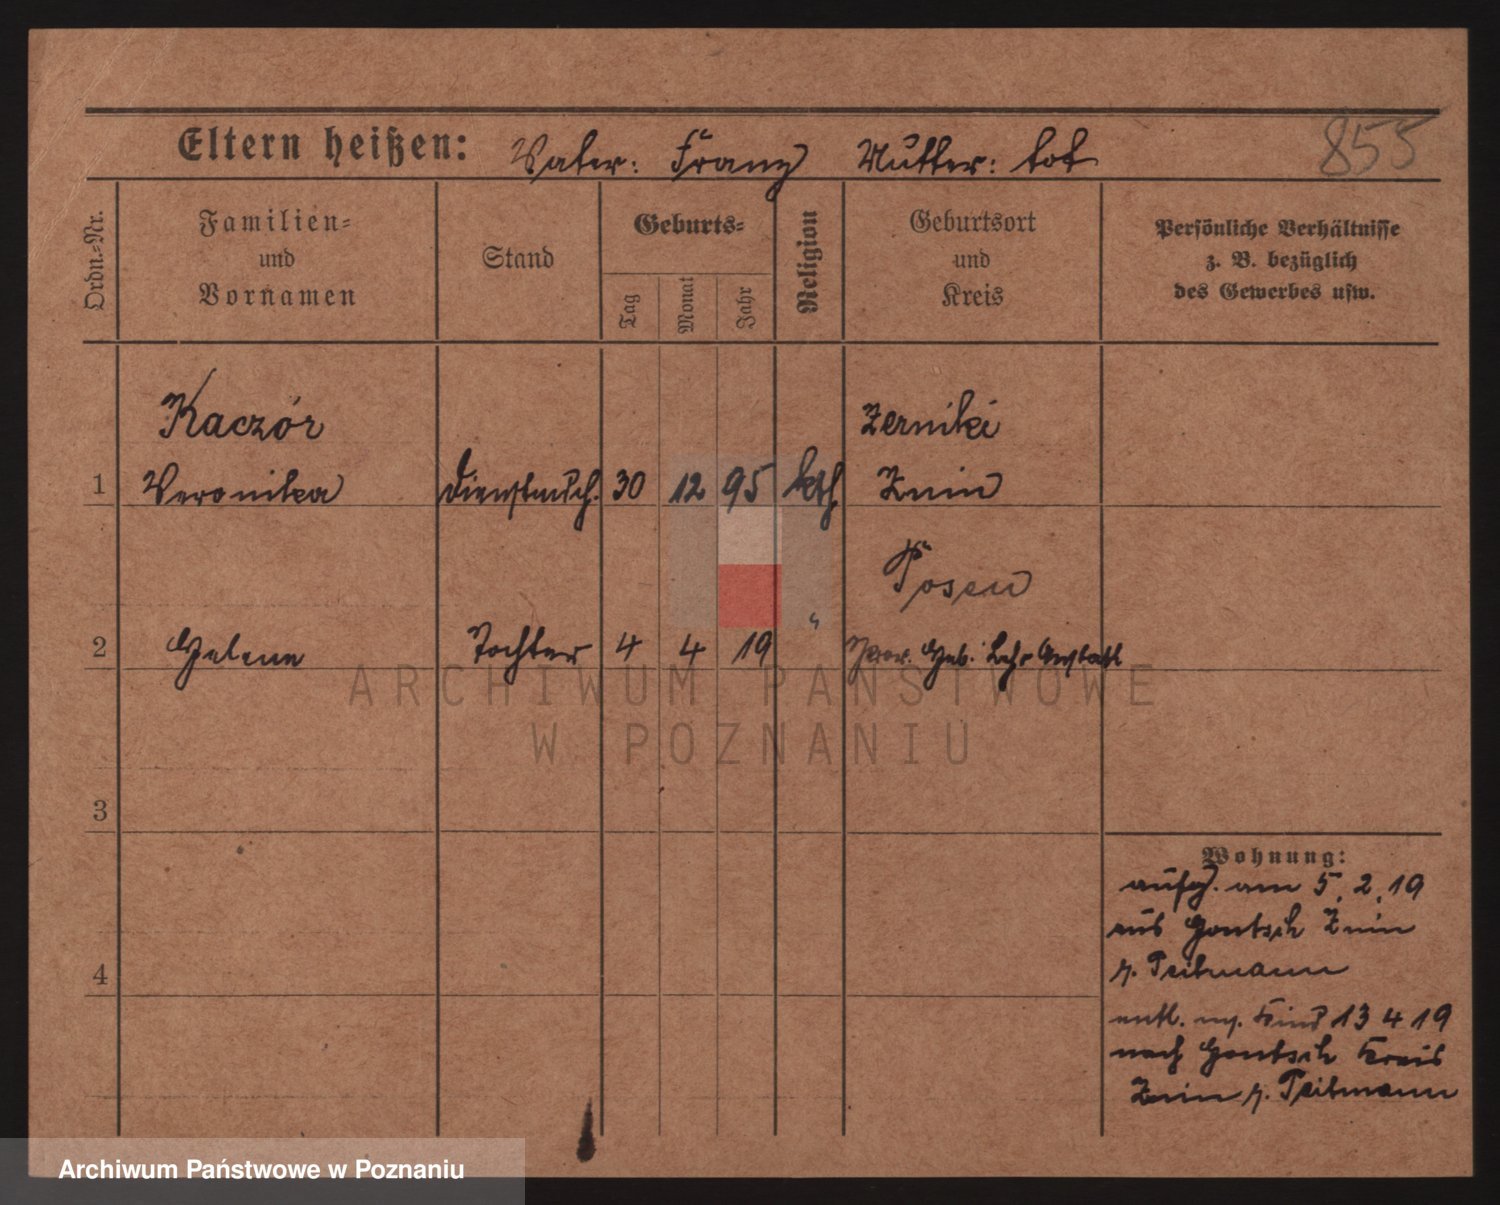 Eltern heißen: Vater: Franz Mutter: tot 855
Ordn.-Nr.
Familien-
und
Vornamen
Stand
Geburts-
Tag
Monat
Jahr
Religion
Geburtsort
und
Kreis
Persönliche Verhältnisse
z. B. bezüglich
des Gewerbes usw.
Kaczór Zerniki
1 Veronika Dienstmdch. 30 12 95 kth Znin
Posen
2 Helene Tochter 4 4 19 " Prov. Heb. Lehr Anstalt
ARCHIWUM PAŃSTWOWE
W POZNANIU
3
Wohnung:
aufg. am 5.2.19
aus Gontsch Znin
4
entl. m. Kind 13 4 19
nach Gontsch Kreis
Znin
Archiwum Państwowe w Poznaniu